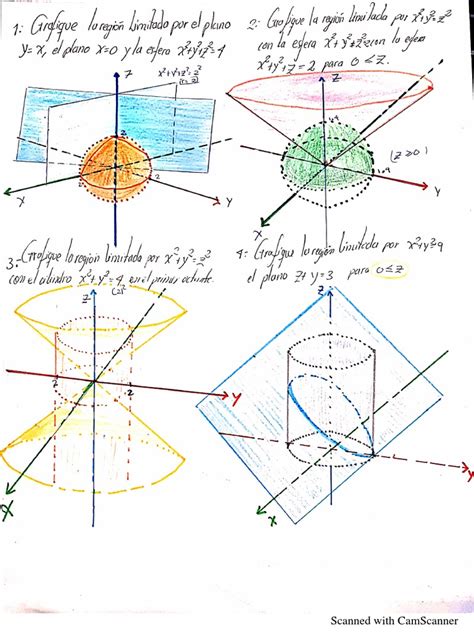 1: Grafique la región limitada por el plano
y=x, el plano x=0 y la esfera x²+y²+z²=4
x²+y²+z²=2²
(r=2)
Z
2
2
X
Y
2: Grafique la región limitada por x²+y²=z²
con la esfera x²+y²+z²=2 con la esfera
x²+y²+z=2 para 0≤z.
Z
(z≥0)
X
Y
3. Grafique la región limitada por x²+y²=z²
con el cilindro x²+y²=4 en el primer octante.
Z
2
2
Y
X
4: Grafique la región limitada por x²+y²=9
el plano z+y=3 para 0≤z
Z
X
Y
Scanned with CamScanner